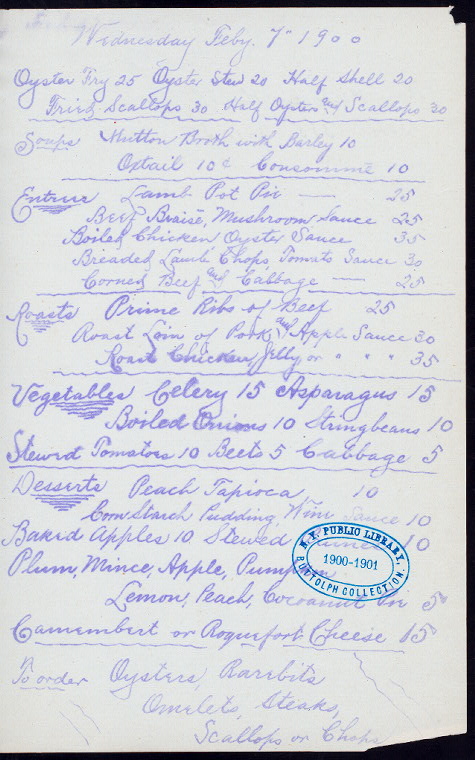 Wednesday Feby. 7" 1900
Oyster Fry 25 Oyster Stew 20 Half Shell 20
Fried Scallops 30 Half Oysters and Scallops 30
Soups Mutton Broth with Barley 10
Oxtail 10¢ Consommé 10
Entree Lamb Pot Pie — 25
Beef Braisé, Mushroom Sauce 25
Boiled Chicken, Oyster Sauce 35
Breaded Lamb Chops Tomato Sauce 30
Corned Beef and Cabbage — 25
Roasts Prime Ribs of Beef 25
Roast Loin of Pork and Apple Sauce 30
Roast Chicken, Jelly or " " " 35
Vegetables Celery 15 Asparagus 15
Boiled Onions 10 Stringbeans 10
Stewed Tomatoes 10 Beets 5 Cabbage 5
Desserts Peach Tapioca, 10
Corn Starch Pudding, Wine Sauce 10
Baked Apples 10 Stewed 10
Plum, Mince, Apple, Pumpkin,
Lemon, Peach, Cocoanut 5
Camembert or Roquefort Cheese 15
To order Oysters, Rarebits
Omelets, Steaks,
Scallops or Chops
N.Y. PUBLIC LIBRARY,
1900-1901
COLLECTION.